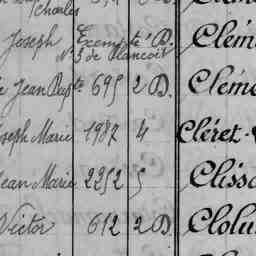 Charles
Joseph Exempté D. Clém
N°3 de Plancoët
Jean Bapte 695 2 D. Clém
Joseph Marie 1987 4 Cléret
Jean Marie 2252 5 Cliss
Victor 612 2 D. Clolu